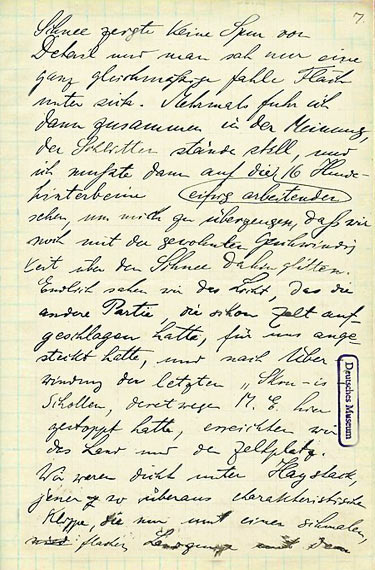 7.
Schnee zeigte keine Spur von
Detail und man sah nur eine
ganz gleichmäßige fahle Fläche
unter sich. Mehrmals fuhr ich
dann zusammen in der Meinung,
der Schlitten stände still, und
ich mußte dann auf die 16 Hunde-
hinterbeine eifrig arbeitenden
sehen, um mich zu überzeugen, daß wir
noch mit der gewohnten Geschwindig
keit über den Schnee dahinglitten.
Endlich sahen wir das Licht, das die
andere Partie, die schon Zelt auf-
geschlagen hatte, für uns ange-
steckt hatte, und nach Über
windung der letzten
Schollen, deretwegen M. E. hier
gestoppt hatte, erreichten wir
das Land und den Zeltplatz.
Wir waren dicht unter Haystack,
jener so überaus charakteristischen
Klippe, die nur mit einer schmalen,
flachen Landzunge mit dem
Deutsches Museum